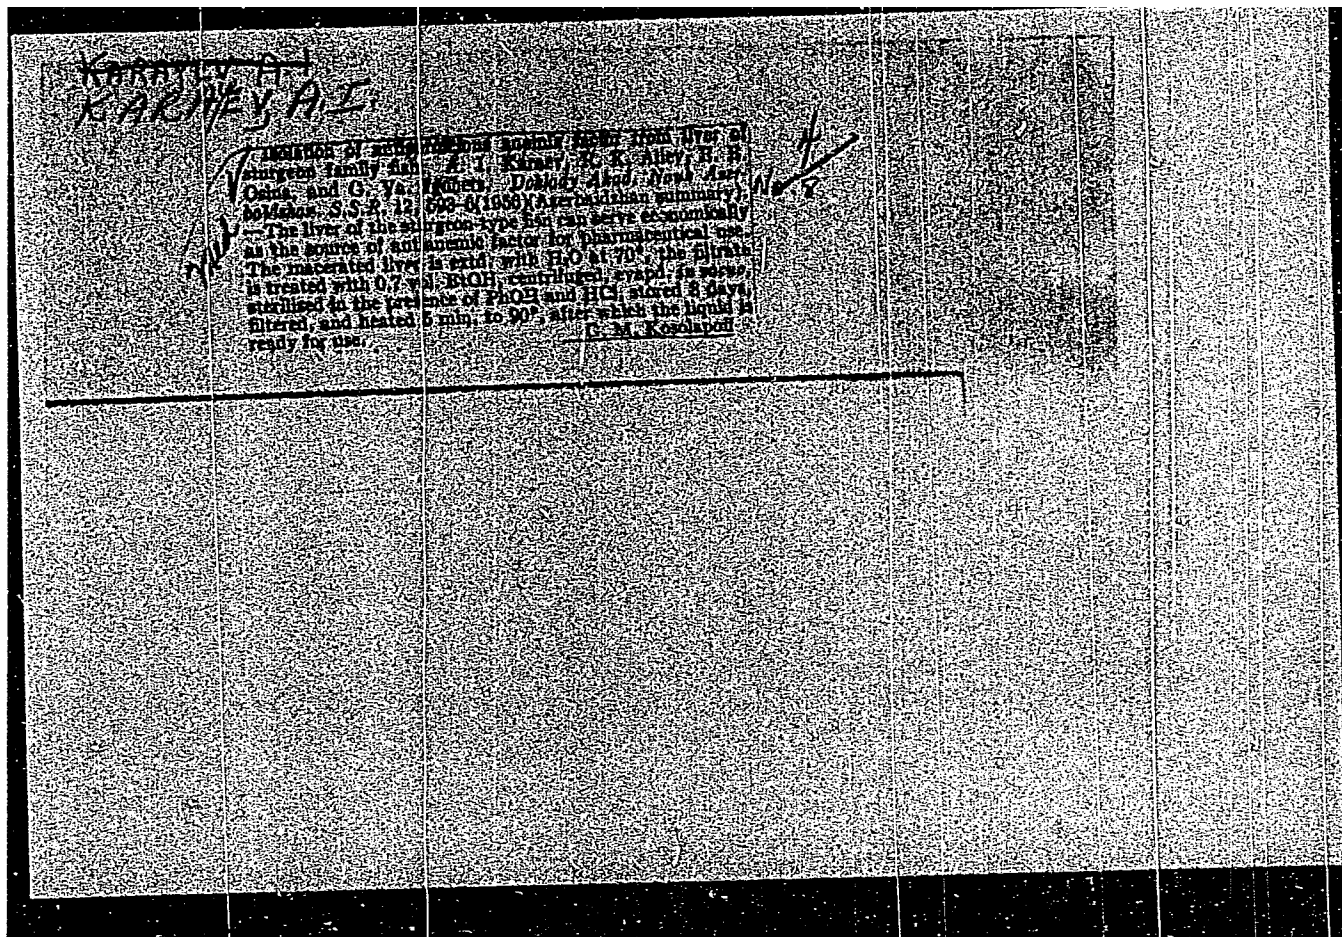 KARAYEV A.I
KARAEV, A.I.
Isolation of antipernicious anemia factor from liver of
sturgeon family fish. A. I. Karaev, R. K. Aliev,
Osina, and G. Ya. Doklady Akad. Nauk Azer-
baidzhan. S.S.R. 12, 593-6(1956)(Azerbaidzhan summary).
—The liver of the sturgeon-type fish can serve economically
as the source of antianemic factor for pharmaceutical use.
The macerated liver is extd. with H₂O at 70°, the filtrate
is treated with 0.7 vol. EtOH, centrifuged, evapd. in vacuo,
sterilized in the presence of PhOH and HCl, stored 3 days,
filtered, and heated 5 min. to 90°, after which the liquid is
ready for use.
G. M. Kosolapoff